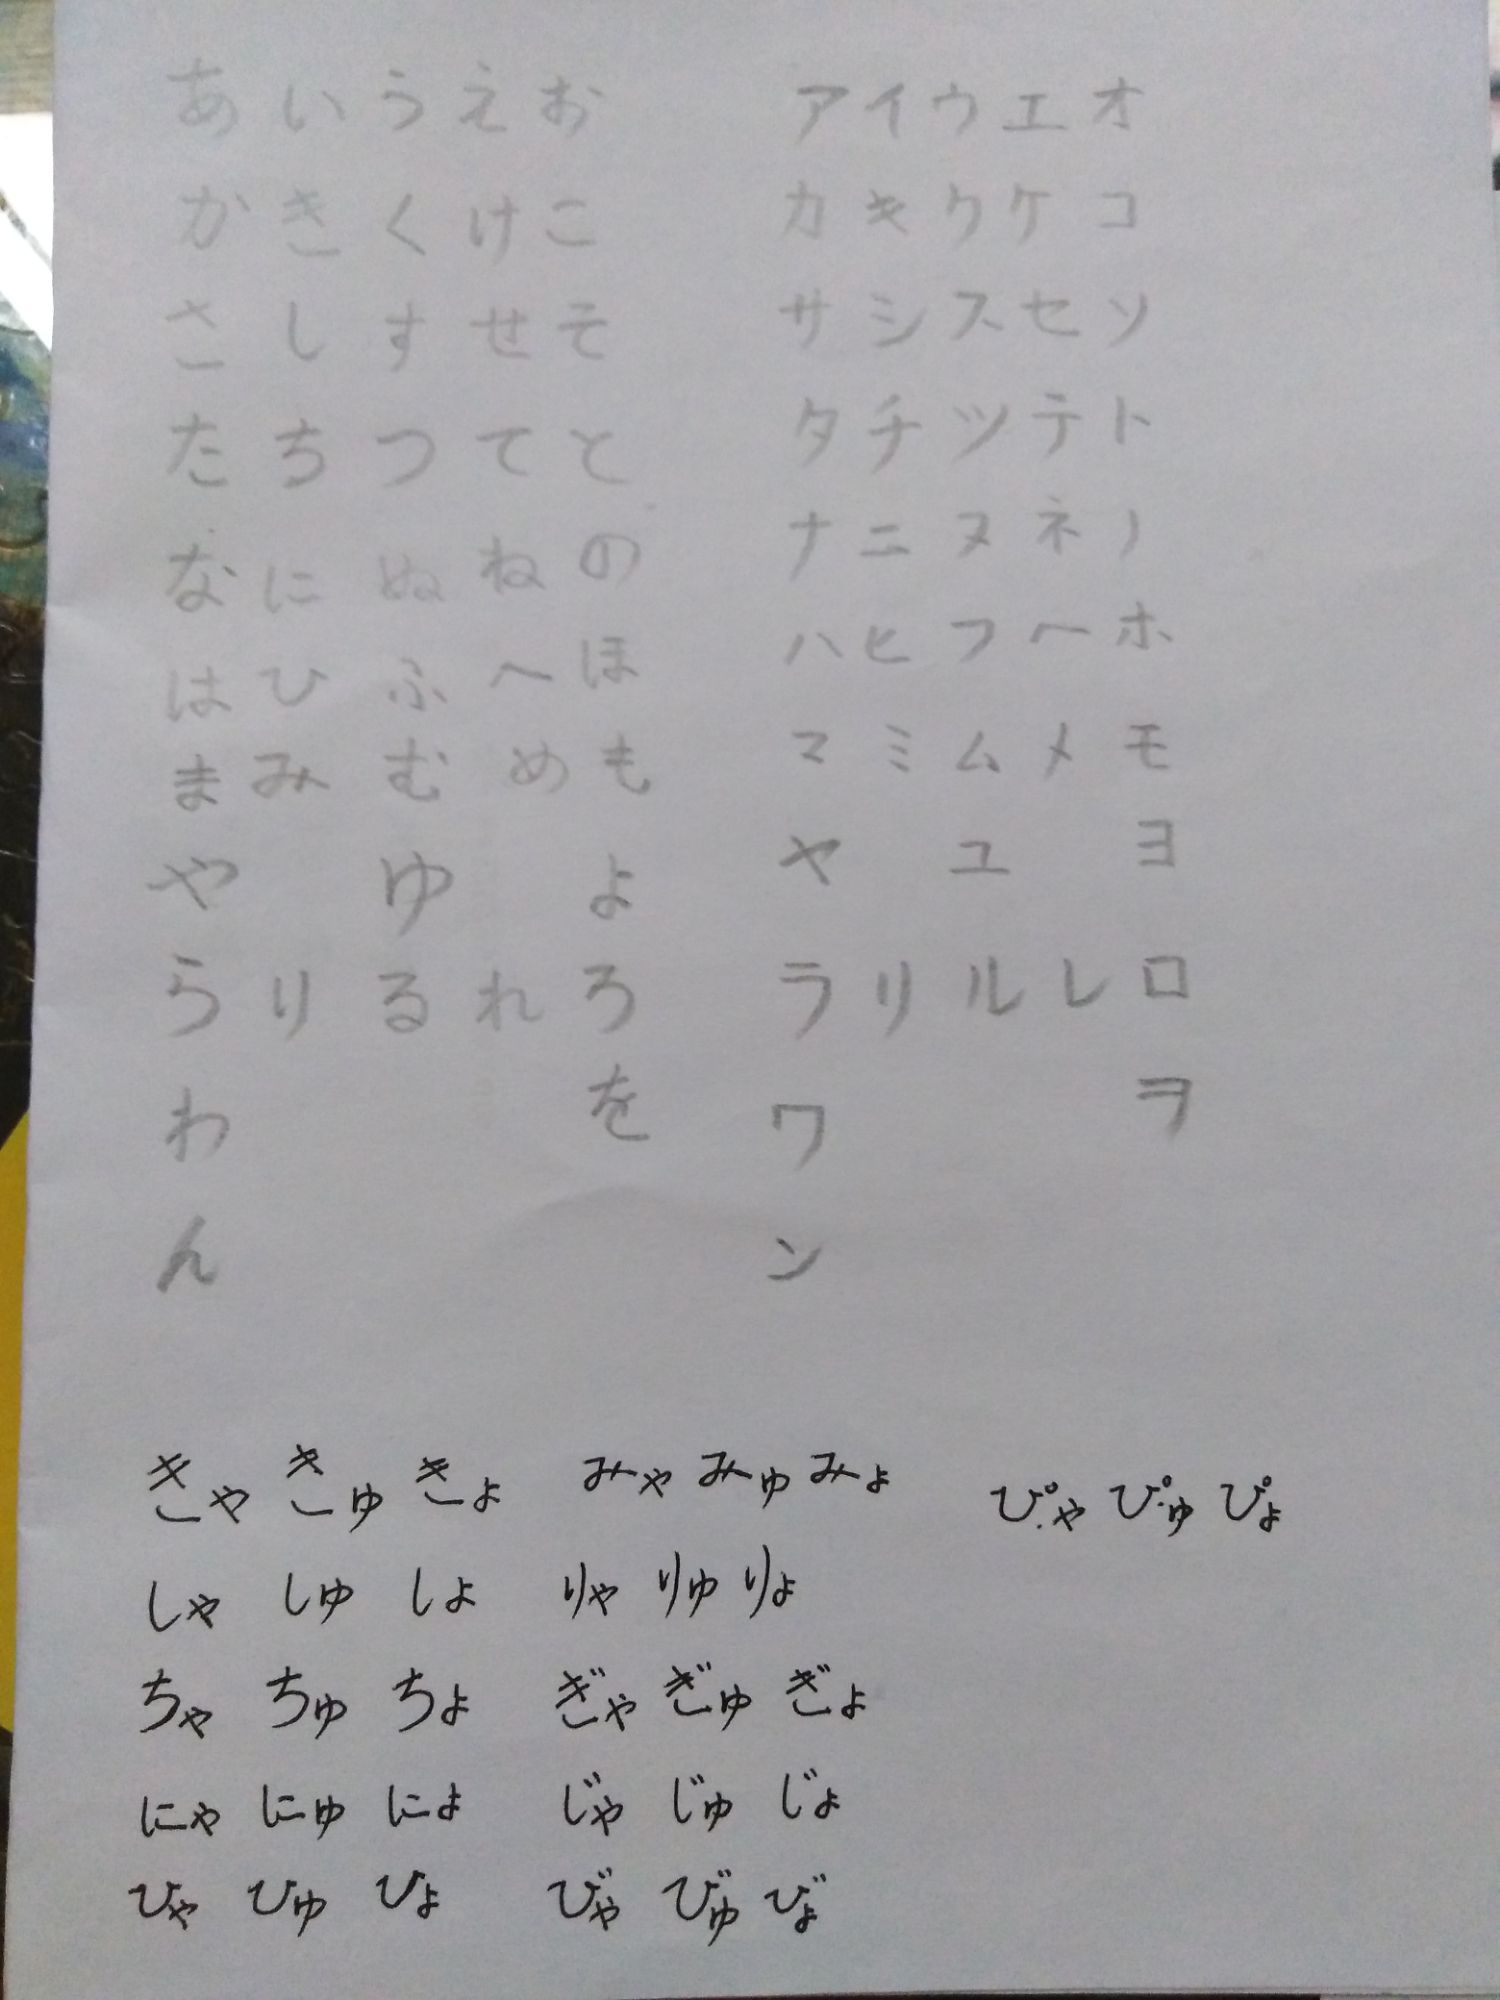 あ い う え お
か き く け こ
さ し す せ そ
た ち つ て と
な に ぬ ね の
は ひ ふ へ ほ
ま み む め も
や ゆ よ
ら り る れ ろ
わ を
ん
ア イ ウ エ オ
カ キ ク ケ コ
サ シ ス セ ソ
タ チ ツ テ ト
ナ ニ ヌ ネ ノ
ハ ヒ フ ヘ ホ
マ ミ ム メ モ
ヤ ユ ヨ
ラ リ ル レ ロ
ワ ヲ
ン
きゃ きゅ きょ
しゃ しゅ しょ
ちゃ ちゅ ちょ
にゃ にゅ にょ
ひゃ ひゅ ひょ
みゃ みゅ みょ
りゃ りゅ りょ
ぎゃ ぎゅ ぎょ
じゃ じゅ じょ
びゃ びゅ びょ
ぴゃ ぴゅ ぴょ